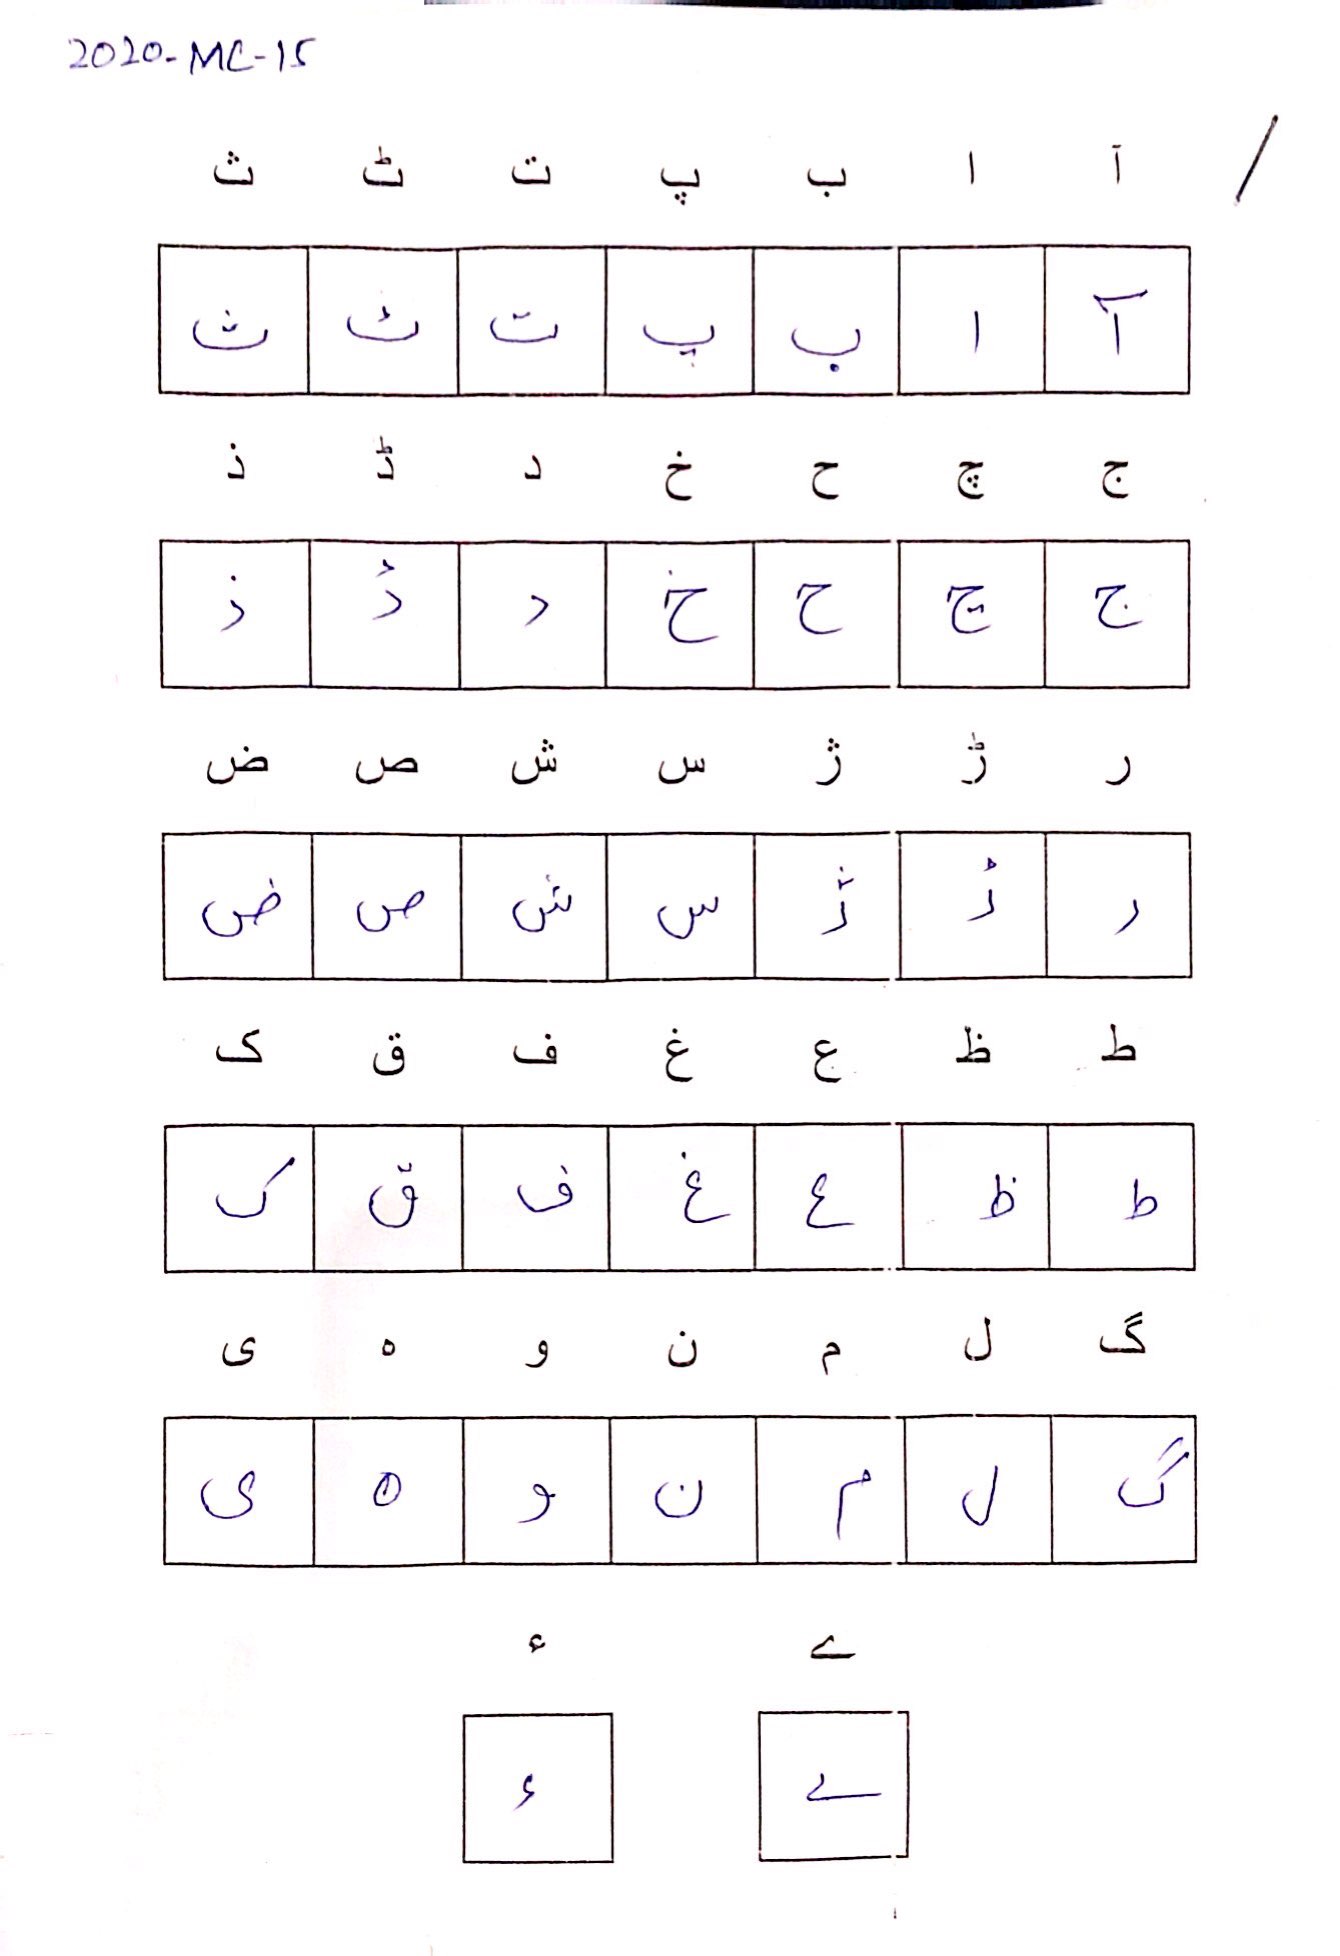 2020-MC-15
آ ا ب پ ت ٹ ث
آ ا ب پ ت ٹ ث
ج چ ح خ د ڈ ذ
ج چ ح خ د ڈ ذ
ر ڑ ژ س ش ص ض
ر ڑ ژ س ش ص ض
ط ظ ع غ ف ق ک
ط ظ ع غ ف ق ک
گ ل م ن و ہ ی
گ ل م ن و ہ ی
ے ء
ے ء